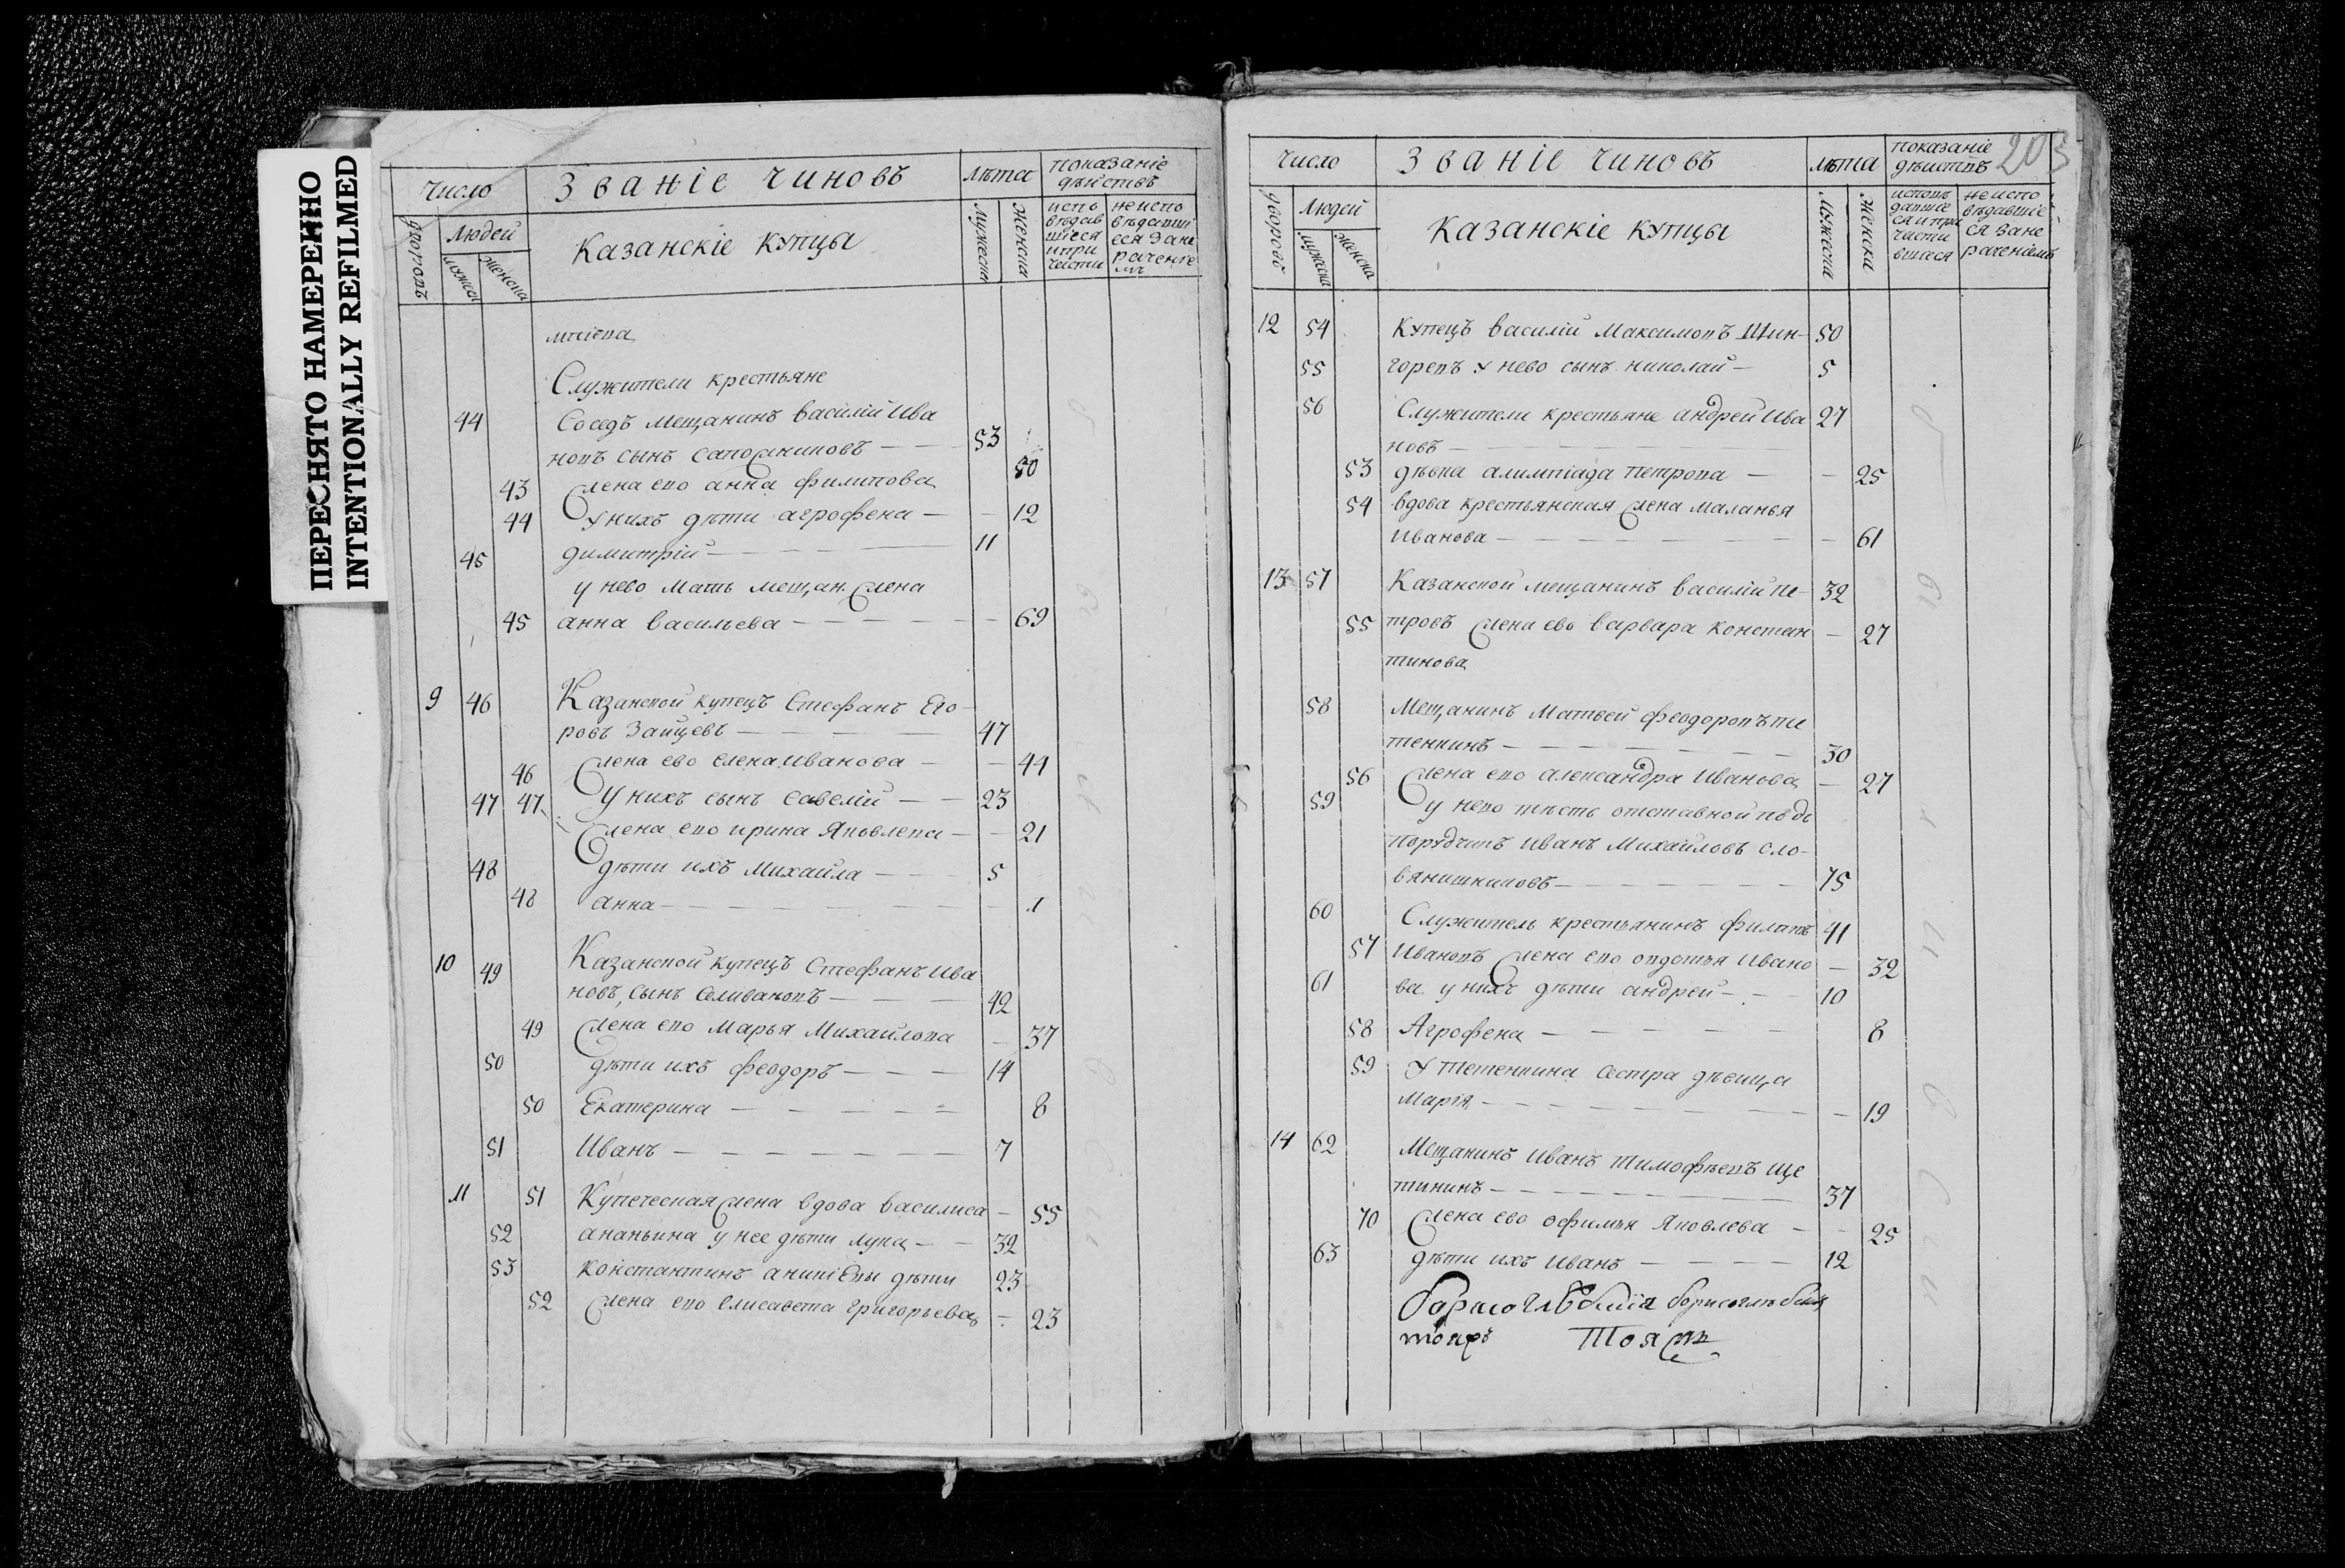 ПЕРЕСНЯТО НАМЕРЕННО
INTENTIONALLY REFILMED
число Званіе чиновъ лѣта показаніе
дѣиствъ
дворовъ людей Казанскіе купцы мужеска женска испо неиспо
вѣдав вѣдавшi
шіеся еся зане
ипри раченіе
части мъ
мужеска женска
Служители крестьяне
44 Соседъ мещанинъ василій Ива
новъ сынъ сапожниковъ — — 53
43 Жена ево анна филипова 50
44 У нихъ дѣти агрофена — — 12
45 димитрій — — — 11
у нево мать мещан. жена
45 анна васильева — — — — — 69
9 46 Казанской купецъ Стефанъ Его-
ровъ Зайцевъ — — — — 47
46 Жена ево елена иванова — — 44
47 47 У нихъ сынъ савелій — — 23
Жена ево ирина Яковлева — — 21
48 дѣти ихъ Михайла — — — 5
48 анна — — — — — — — 1
10 49 Казанской купецъ Стефанъ Ива
новъ сынъ Селивановъ — — — 42
49 Жена ево Марья Михайлова — 37
50 дѣти ихъ феодоръ — — — 14
50 Екатерина — — — — — 8
51 Иванъ — — — — — — — 7
11 51 Купеческая жена вдова василиса — 55
52 ананьина у нее дѣти лука — — 32
53 константинъ дѣти 23
52 Жена ево елисавета григорьева — 23
203
число Званіе чиновъ лѣта показаніе
дѣиствъ
дворовъ людей Казанскіе купцы мужеска женска исповѣ неиспо
давшіе вѣдавшіе
ся и при ся зане
части раченіемъ
вшіеся
мужеска женска
12 54 Купецъ василій Максимовъ Щин- 50
55 горевъ у нево сынъ николай — 5
56 Служители крестьяне андрей Ива 27
новъ — — — — —
53 дѣвка алимпіада петрова — — 25
54 вдова крестьянская жена маланья
Иванова — — — — — — — — 61
13 57 Казанской мещанинъ василій пе- 32
55 тровъ жена ево варвара констан — 27
тинова
58 Мещанинъ Матвей феодоровъ ти
тенкинъ — — — — — — — 30
56 Жена ево александра Иванова — 27
59 у него тѣсть отставной подъ
порутчикъ Иванъ Михайловъ сло-
вянишниковъ — — — — — — 75
60 Служитель крестьянинъ филипъ 41
57 Ивановъ жена ево овдотья Ивано — 32
61 ва у нихъ дѣти андрей — — — 10
58 Агрофена — — — — — 8
59 У тетенкина сестра дѣвица
Марія — — — — — — — — — 19
14 62 Мещанинъ Иванъ тимофѣевъ ще
тининъ — — — — — — — 37
70 Жена ево офимья Яковлева — — 25
63 дѣти ихъ Иванъ — — — — 12